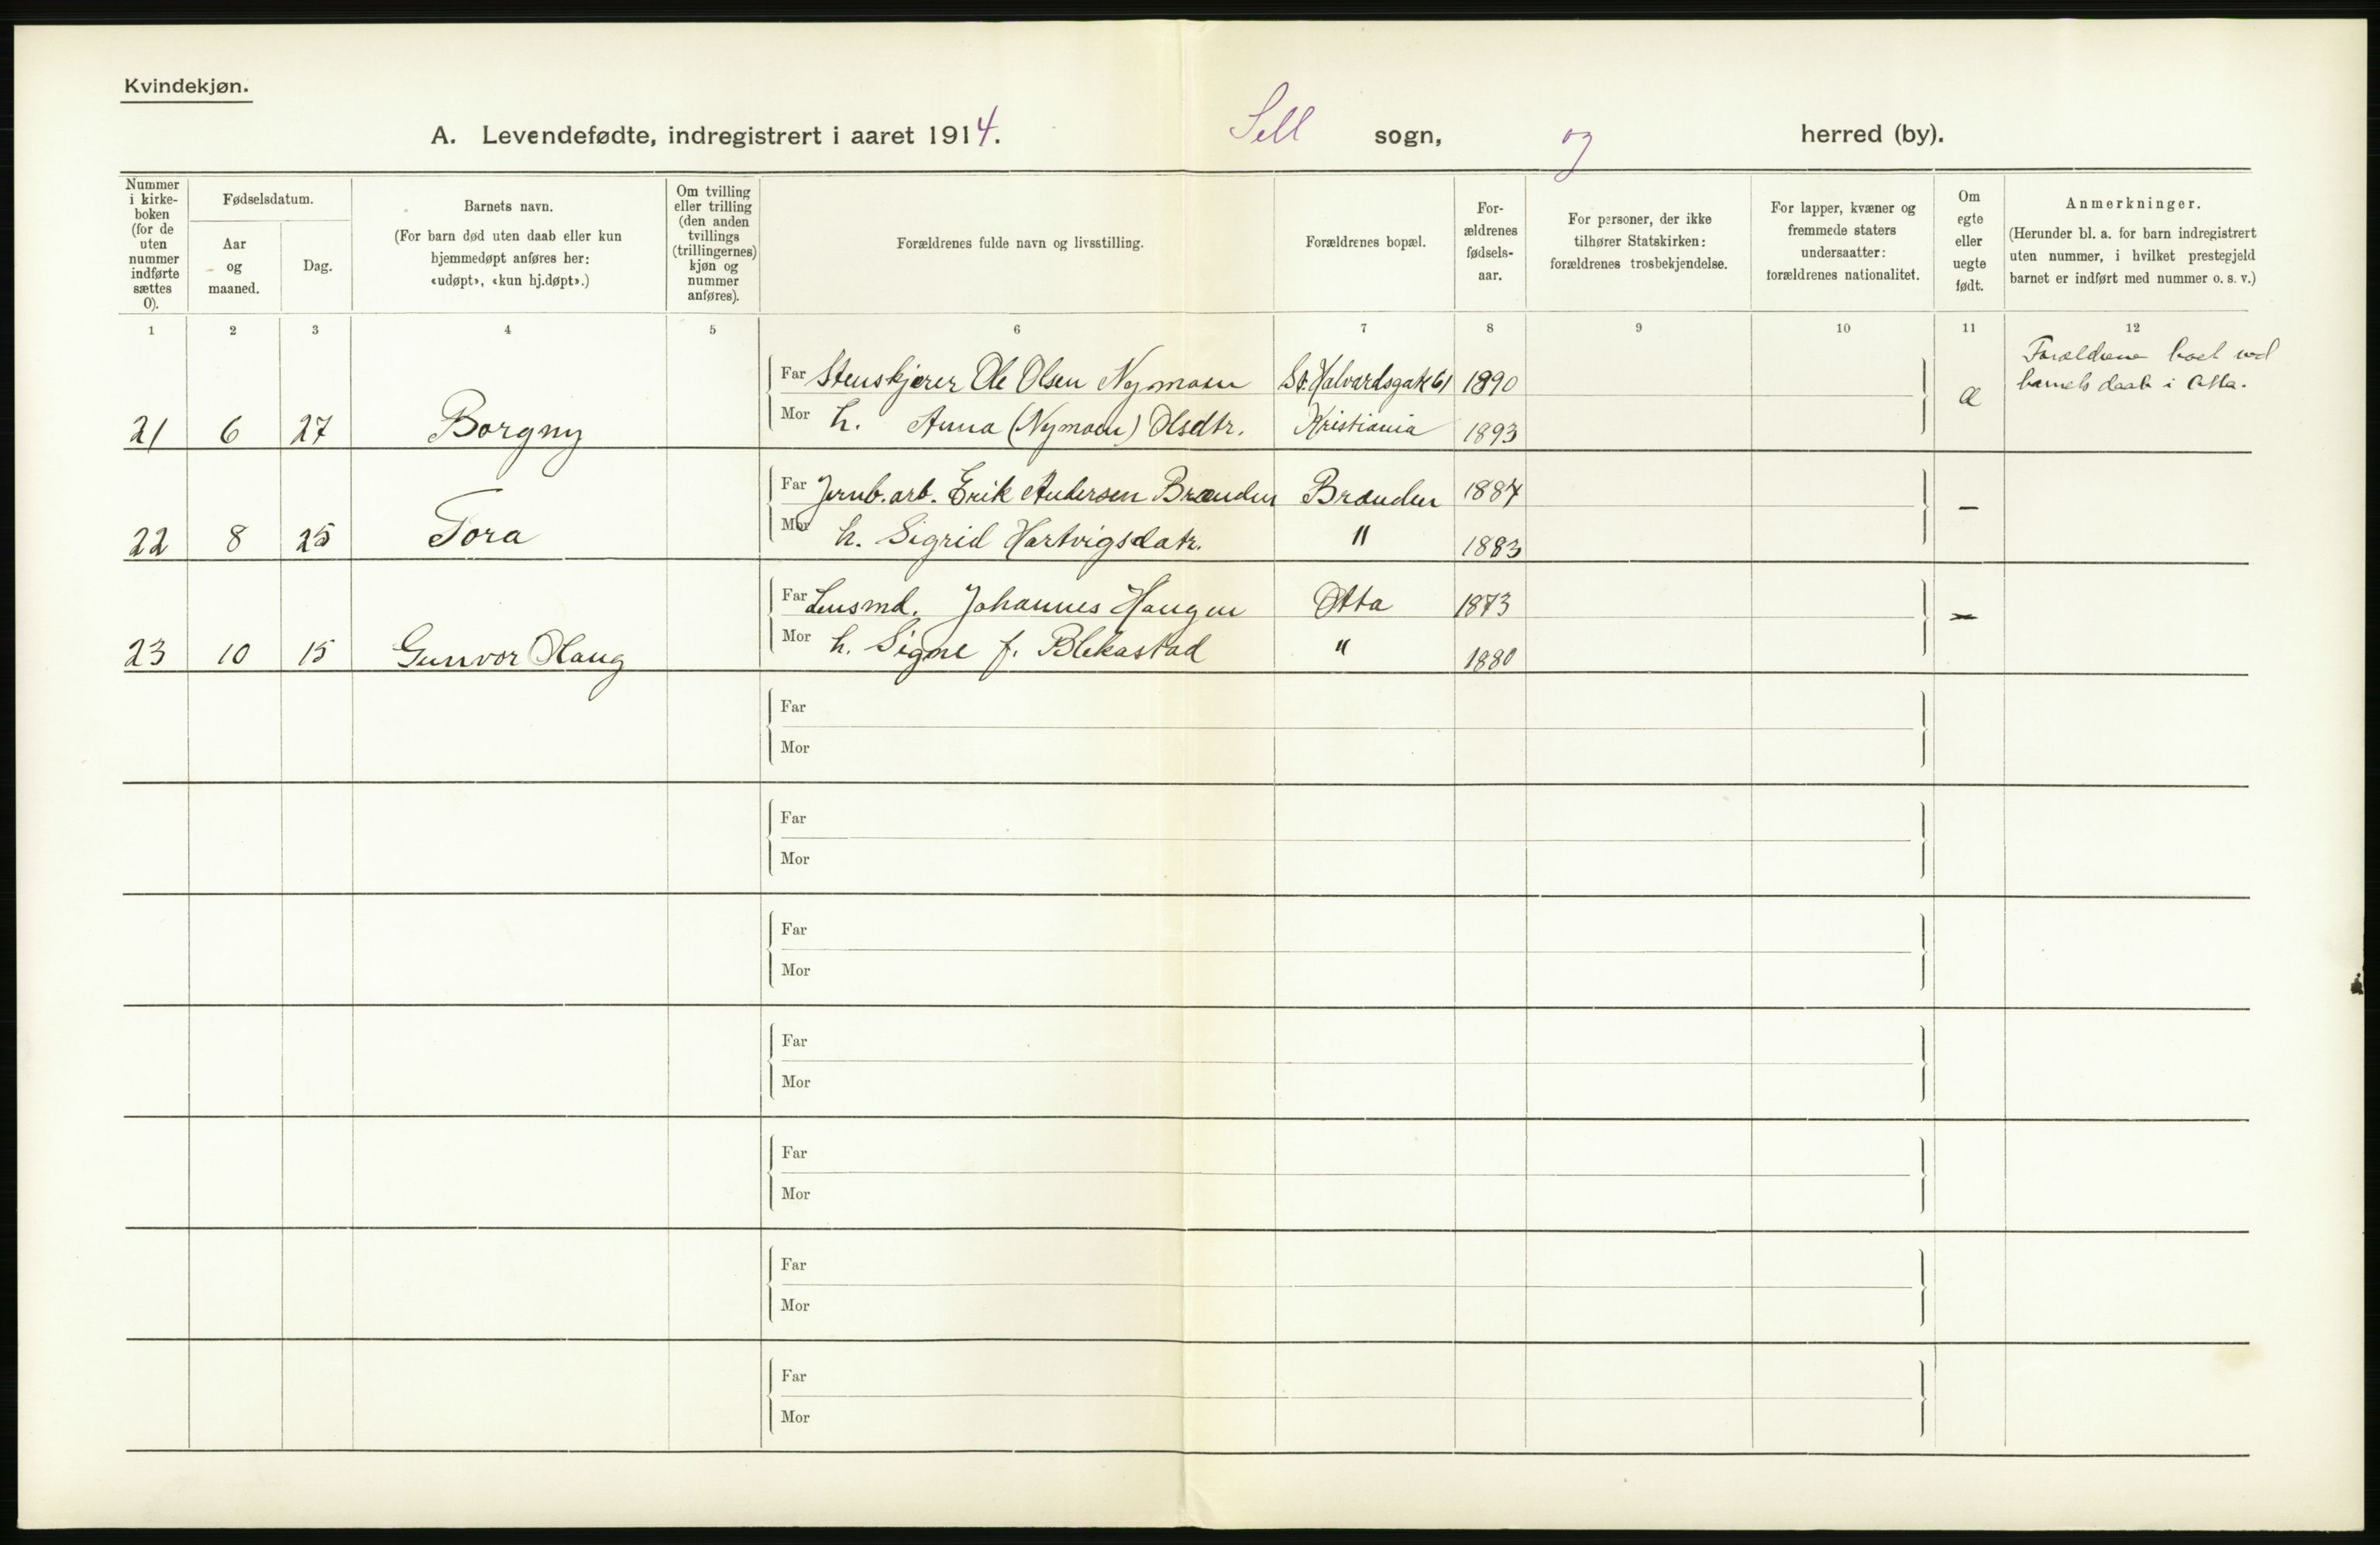 Kvindekjøn.
A. Levendefødte, indregistrert i aaret 1914. Sell sogn, og herred (by).
Nummer i kirke-boken (for de uten nummer indførte sættes 0).
Fødselsdatum.
Aar og maaned.
Dag.
Barnets navn.
(For barn død uten daab eller kun hjemmedøpt anføres her: «udøpt», «kun hj.døpt».)
Om tvilling eller trilling (den anden tvillings (trillingernes) kjøn og nummer anføres).
Forældrenes fulde navn og livsstilling.
Forældrenes bopæl.
For-ældrenes fødsels-aar.
For personer, der ikke tilhører Statskirken: forældrenes trosbekjendelse.
For lapper, kvæner og fremmede staters undersaatter: forældrenes nationalitet.
Om egte eller uegte født.
Anmerkninger.
(Herunder bl. a. for barn indregistrert uten nummer, i hvilket prestegjeld barnet er indført med nummer o. s. v.)
1 2 3 4 5 6 7 8 9 10 11 12
Far Stenskjærer Ole Olsen Nymoen St. Halvardsgate 61 1890
21 6 27 Borgny Mor h. Anna (Nymoen) Olsdtr. Kristiania 1893 Æ
Forældrene boel ved
barnets daab i Otta.
Far Jernb.arb. Erik Andersen Brænden Brænden 1887
22 8 25 Tora Mor h. Sigrid Hartvigsdatr. " 1883 —
Far Lensmd. Johannes Haugen Otta 1873
23 10 15 Gunvor Haug Mor h. Signe f. Blekastad " 1880 —
Far
Mor
Far
Mor
Far
Mor
Far
Mor
Far
Mor
Far
Mor
Far
Mor